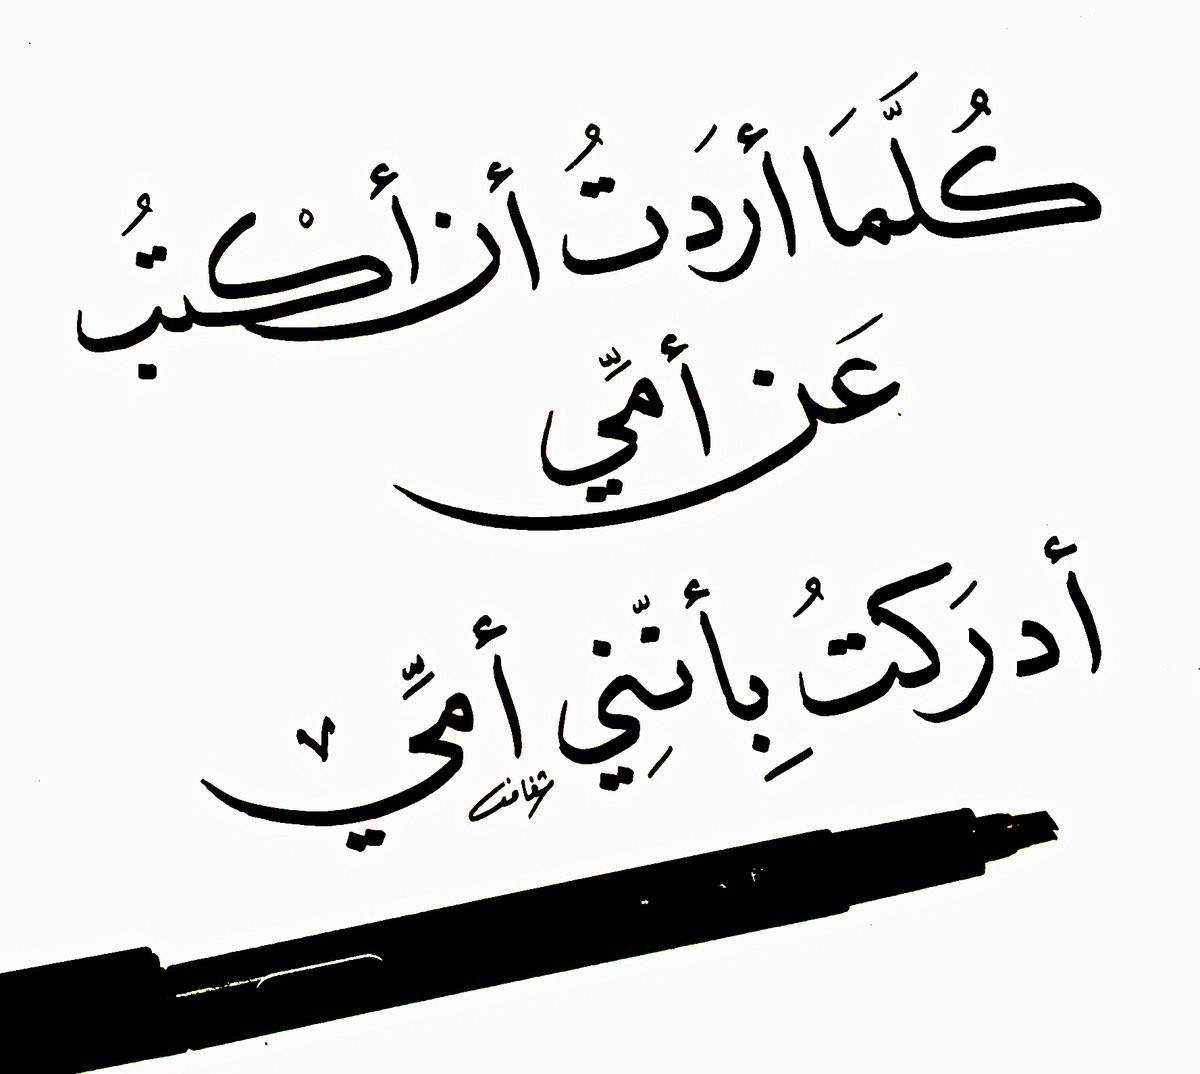 كُلَّمَا أردَتُ أن أكْتبُ
عَن أمِّي
أدرَكتُ بِأنّنِي أمِّي